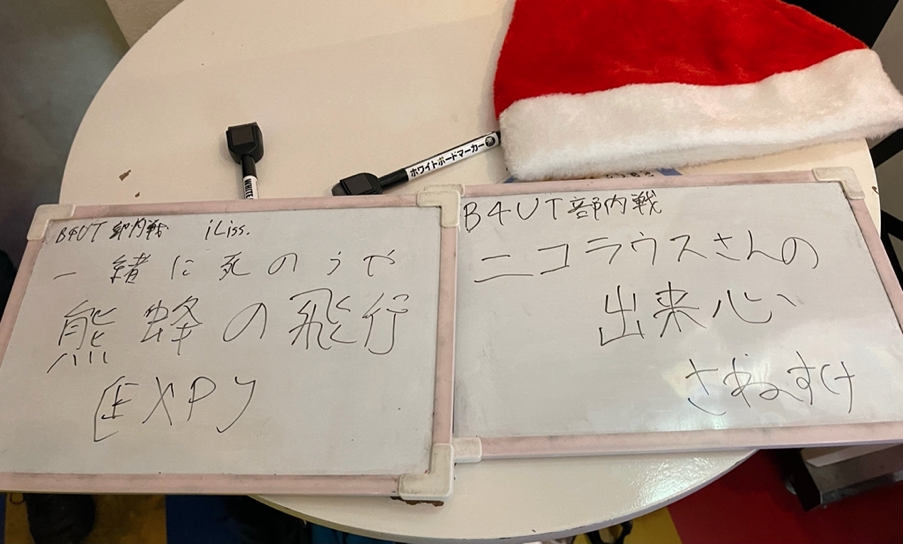 WHITE
ホワイトボードマーカー
B4UT 部内戦 iLiss.
一緒に死のうや
熊蜂の飛行
[EXPリ
B4UT 部内戦
ニコラウスさんの
出来心
さねすけ